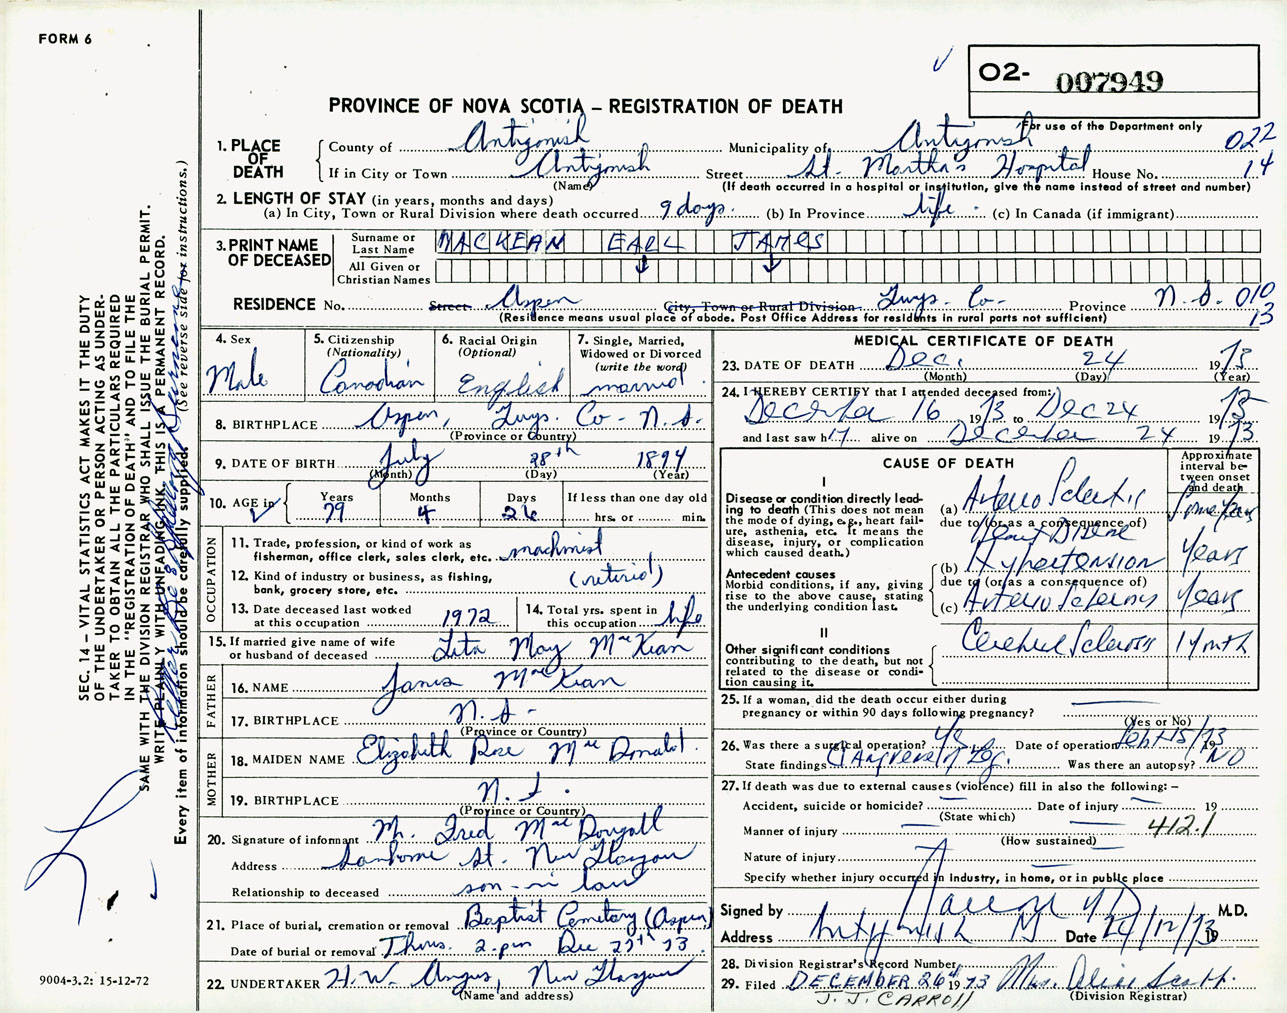 FORM 6
O2- 007949
PROVINCE OF NOVA SCOTIA – REGISTRATION OF DEATH
For use of the Department only
022
14
1. PLACE OF DEATH
County of Antigonish Municipality of Antigonish
If in City or Town Antigonish Street St. Martha's Hospital House No.
(Name) (If death occurred in a hospital or institution, give the name instead of street and number)
2. LENGTH OF STAY (in years, months and days)
(a) In City, Town or Rural Division where death occurred 9 days. (b) In Province life. (c) In Canada (if immigrant)
3. PRINT NAME OF DECEASED
Surname or Last Name MACKEAN EARL JAMES
All Given or Christian Names
RESIDENCE No. Street Aspen City, Town or Rural Division Guys. Co- Province N.S. 010
13
(Residence means usual place of abode. Post Office Address for residents in rural parts not sufficient)
4. Sex
Male
5. Citizenship (Nationality)
Canadian
6. Racial Origin (Optional)
English
7. Single, Married, Widowed or Divorced (write the word)
married
8. BIRTHPLACE Aspen, Guys. Co- N.S.
(Province or Country)
9. DATE OF BIRTH July 28th 1894
(Month) (Day) (Year)
10. AGE in Years 79 Months 4 Days 26 If less than one day old
hrs. or min.
OCCUPATION
11. Trade, profession, or kind of work as fisherman, office clerk, sales clerk, etc. machinist
12. Kind of industry or business, as fishing, bank, grocery store, etc. (retired)
13. Date deceased last worked at this occupation 1972
14. Total yrs. spent in this occupation life
15. If married give name of wife or husband of deceased Lita May MacKean
FATHER
16. NAME James MacKean
17. BIRTHPLACE N.S-
(Province or Country)
MOTHER
18. MAIDEN NAME Elizabeth Rose MacDonald.
19. BIRTHPLACE N.S.
(Province or Country)
20. Signature of informant Mr. Fred MacDougall
Address Sanborne St. New Glasgow
Relationship to deceased son-in law
21. Place of burial, cremation or removal Baptist Cemetary (Aspen)
Date of burial or removal Thurs. 2.pm Dec 27th 73.
22. UNDERTAKER H.W. Angus, New Glasgow
(Name and address)
MEDICAL CERTIFICATE OF DEATH
23. DATE OF DEATH Dec. 24 1973
(Month) (Day) (Year)
24. I HEREBY CERTIFY that I attended deceased from:
December 16 1973 to Dec 24 1973
and last saw h alive on December 24 1973
CAUSE OF DEATH
Approximate interval between onset and death
I
Disease or condition directly leading to death (This does not mean the mode of dying, e.g., heart failure, asthenia, etc. It means the disease, injury, or complication which caused death.)
(a) Arterio Sclerotic
due to (or as a consequence of)
Heart Disease
Some years
Antecedent causes
Morbid conditions, if any, giving rise to the above cause, stating the underlying condition last.
(b) Hypertension years
due to (or as a consequence of)
(c) Arterio Sclerosis years
II
Other significant conditions
contributing to the death, but not related to the disease or condition causing it.
Cerebral Sclerosis 1 month
25. If a woman, did the death occur either during pregnancy or within 90 days following pregnancy?
(Yes or No)
26. Was there a surgical operation? yes Date of operation 15/73 19
State findings Gangrene of Leg. Was there an autopsy? NO
27. If death was due to external causes (violence) fill in also the following: –
Accident, suicide or homicide? Date of injury 19
(State which)
Manner of injury 412.1
(How sustained)
Nature of injury
Specify whether injury occurred in Industry, in home, or in public place
Signed by MD M.D.
Address Antigonish NS Date 24/12/73 19
28. Division Registrar's Record Number
29. Filed DECEMBER 26th 1973 Mrs. Alice Scott.
J. J. CARROLL (Division Registrar)
SEC. 14 – VITAL STATISTICS ACT MAKES IT THE DUTY
OF THE UNDERTAKER OR PERSON ACTING AS UNDER-
TAKER TO OBTAIN ALL THE PARTICULARS REQUIRED
IN THE "REGISTRATION OF DEATH" AND TO FILE THE
SAME WITH THE DIVISION REGISTRAR WHO SHALL ISSUE THE BURIAL PERMIT.
WRITE PLAINLY WITH UNFADING INK. THIS IS A PERMANENT RECORD.
Every item of information should be carefully supplied. (See reverse side for instructions.)
9004-3.2: 15-12-72